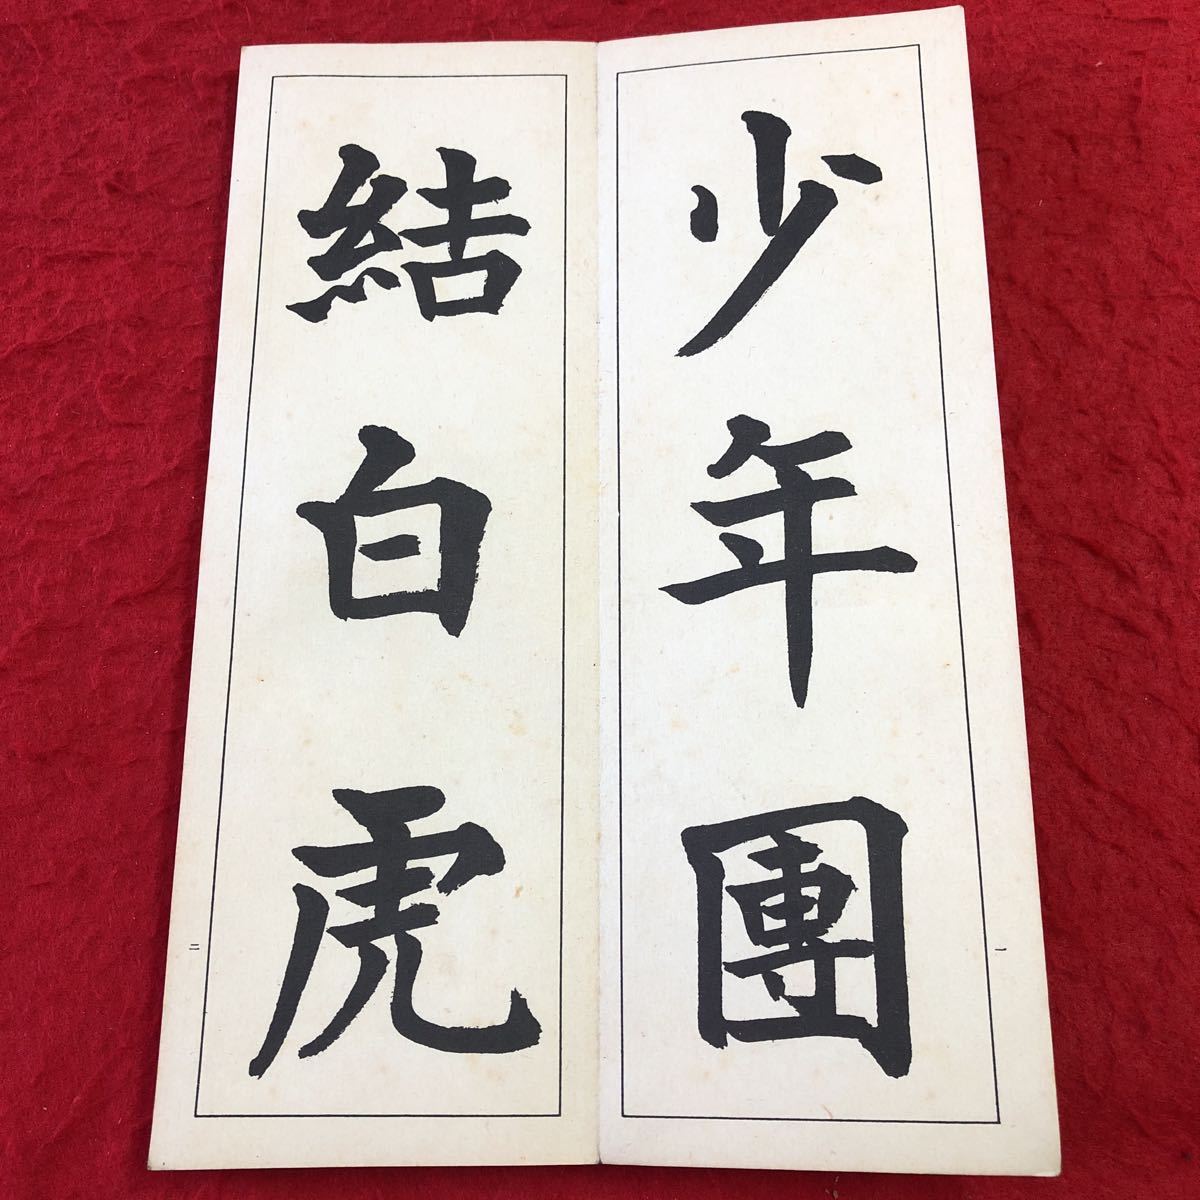 少年團
一
結白虎
二